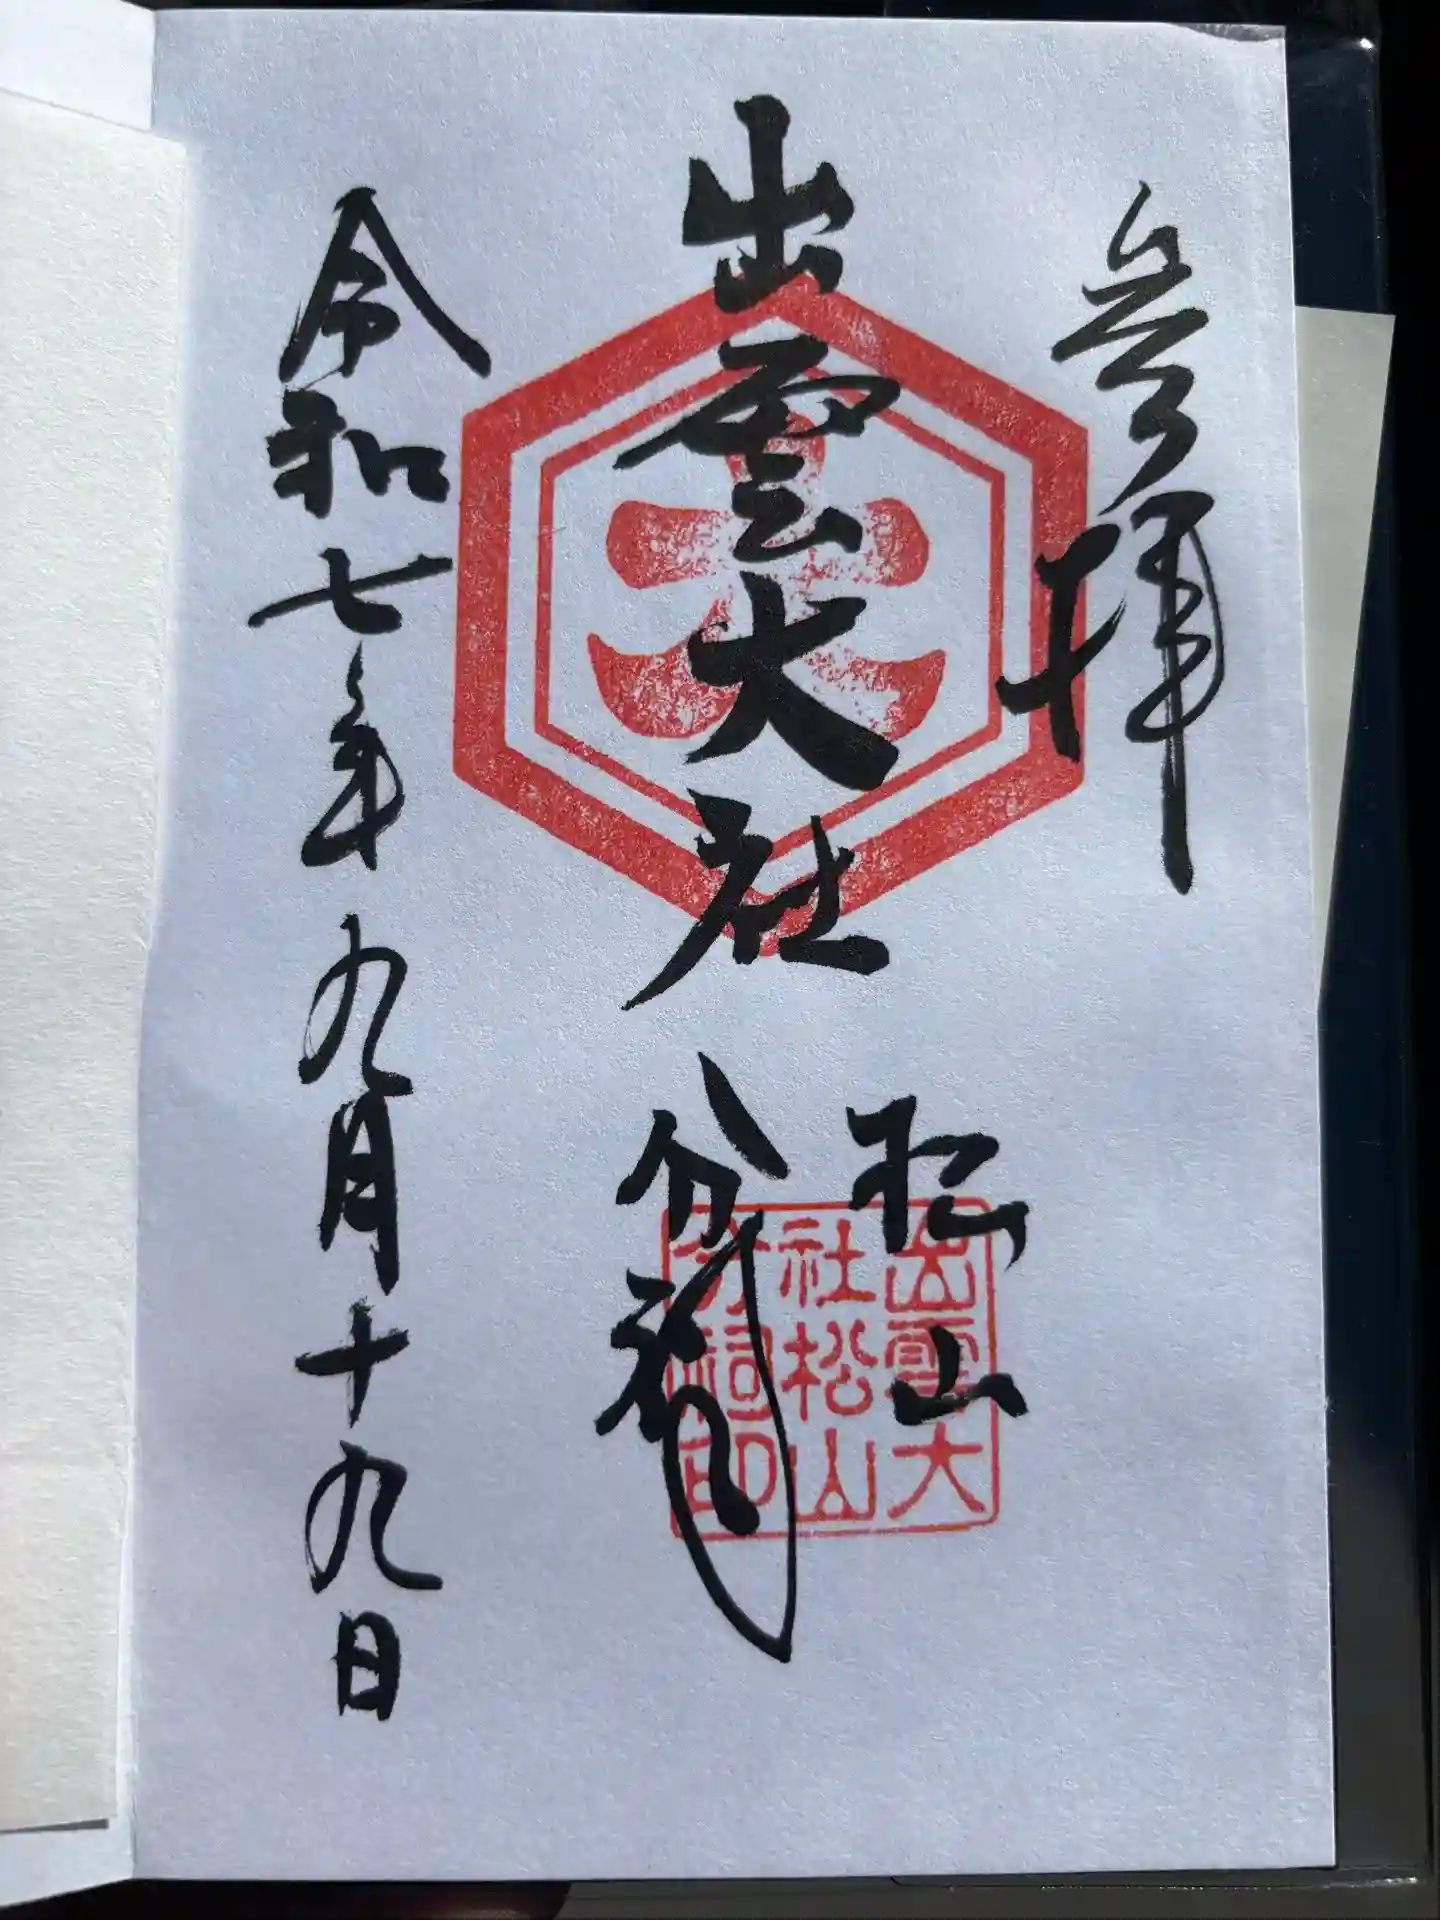 参拝
出雲大社
松山
分祠
令和七年九月十九日
大
出雲大
社松山
分祠印